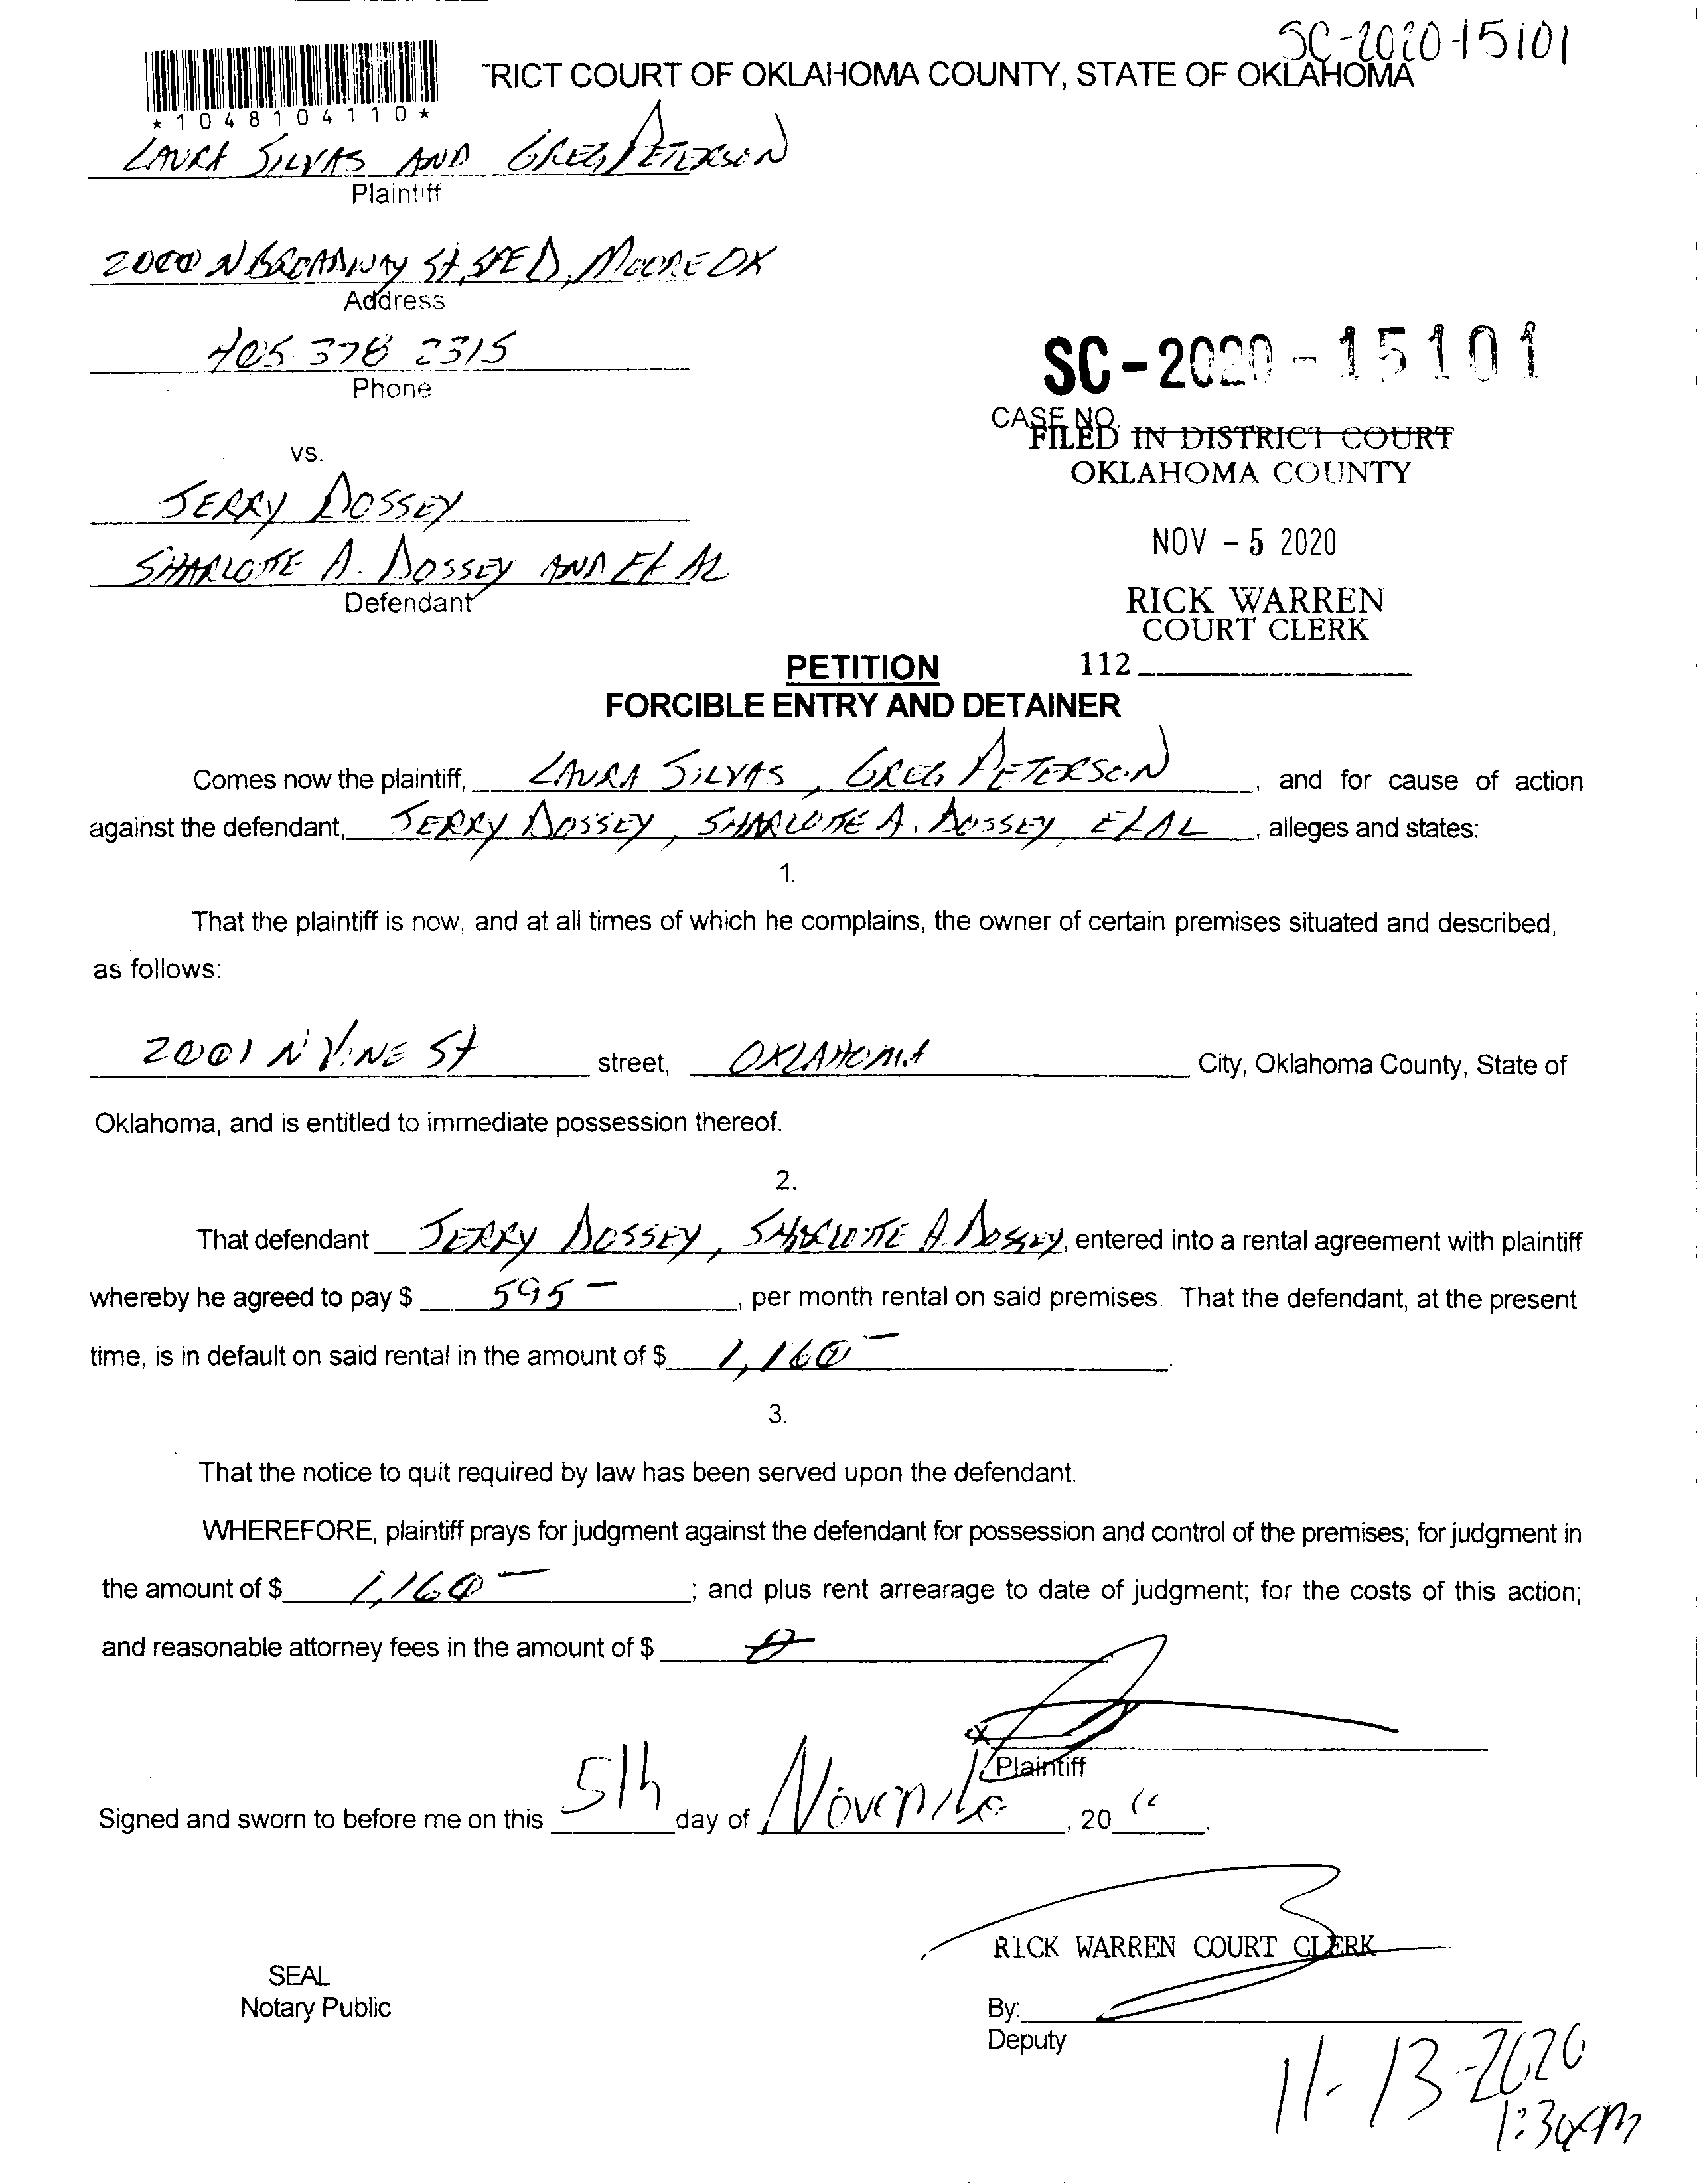 SC-2020-15101
TRICT COURT OF OKLAHOMA COUNTY, STATE OF OKLAHOMA
*1048104110*
LAURA SILVAS AND GREG PETERSON
Plaintiff
2000 N BROADWAY St, STE D, MOORE OK
Address
405 378 2315
Phone
SC-2020-15101
CASE NO.
FILED IN DISTRICT COURT
OKLAHOMA COUNTY
vs.
JERRY DOSSEY
NOV - 5 2020
SHARLOTTE A. DOSSEY AND Et AL
Defendant
RICK WARREN
COURT CLERK
112
PETITION
FORCIBLE ENTRY AND DETAINER
Comes now the plaintiff, LAURA SILVAS, GREG PETERSON, and for cause of action
against the defendant, JERRY DOSSEY, SHARLOTTE A. DOSSEY EtAL, alleges and states:
1.
That the plaintiff is now, and at all times of which he complains, the owner of certain premises situated and described,
as follows:
2001 N VINE St street, OKLAHOMA City, Oklahoma County, State of
Oklahoma, and is entitled to immediate possession thereof.
2.
That defendant JERRY DOSSEY, SHARLOTTE A. DOSSEY, entered into a rental agreement with plaintiff
whereby he agreed to pay $ 595 -, per month rental on said premises. That the defendant, at the present
time, is in default on said rental in the amount of $ 1,160 -.
3.
That the notice to quit required by law has been served upon the defendant.
WHEREFORE, plaintiff prays for judgment against the defendant for possession and control of the premises; for judgment in
the amount of $ 1,160 -; and plus rent arrearage to date of judgment; for the costs of this action;
and reasonable attorney fees in the amount of $
X
Plaintiff
Signed and sworn to before me on this 5th day of November, 20.
RICK WARREN COURT CLERK
SEAL
Notary Public
By:
Deputy
11-13-2020
1:30pm